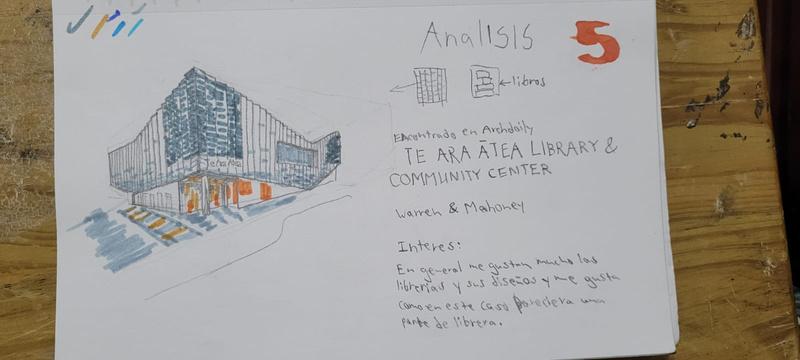 Analisis
5
libros
Encontrado en Archdaily
TE ARA ĀTEA LIBRARY &
COMMUNITY CENTER
Warren & Mahoney
Interes:
En general me gustan mucho las
librerias y sus diseños y me gusta
como en este caso pareciera una
parte de librera.